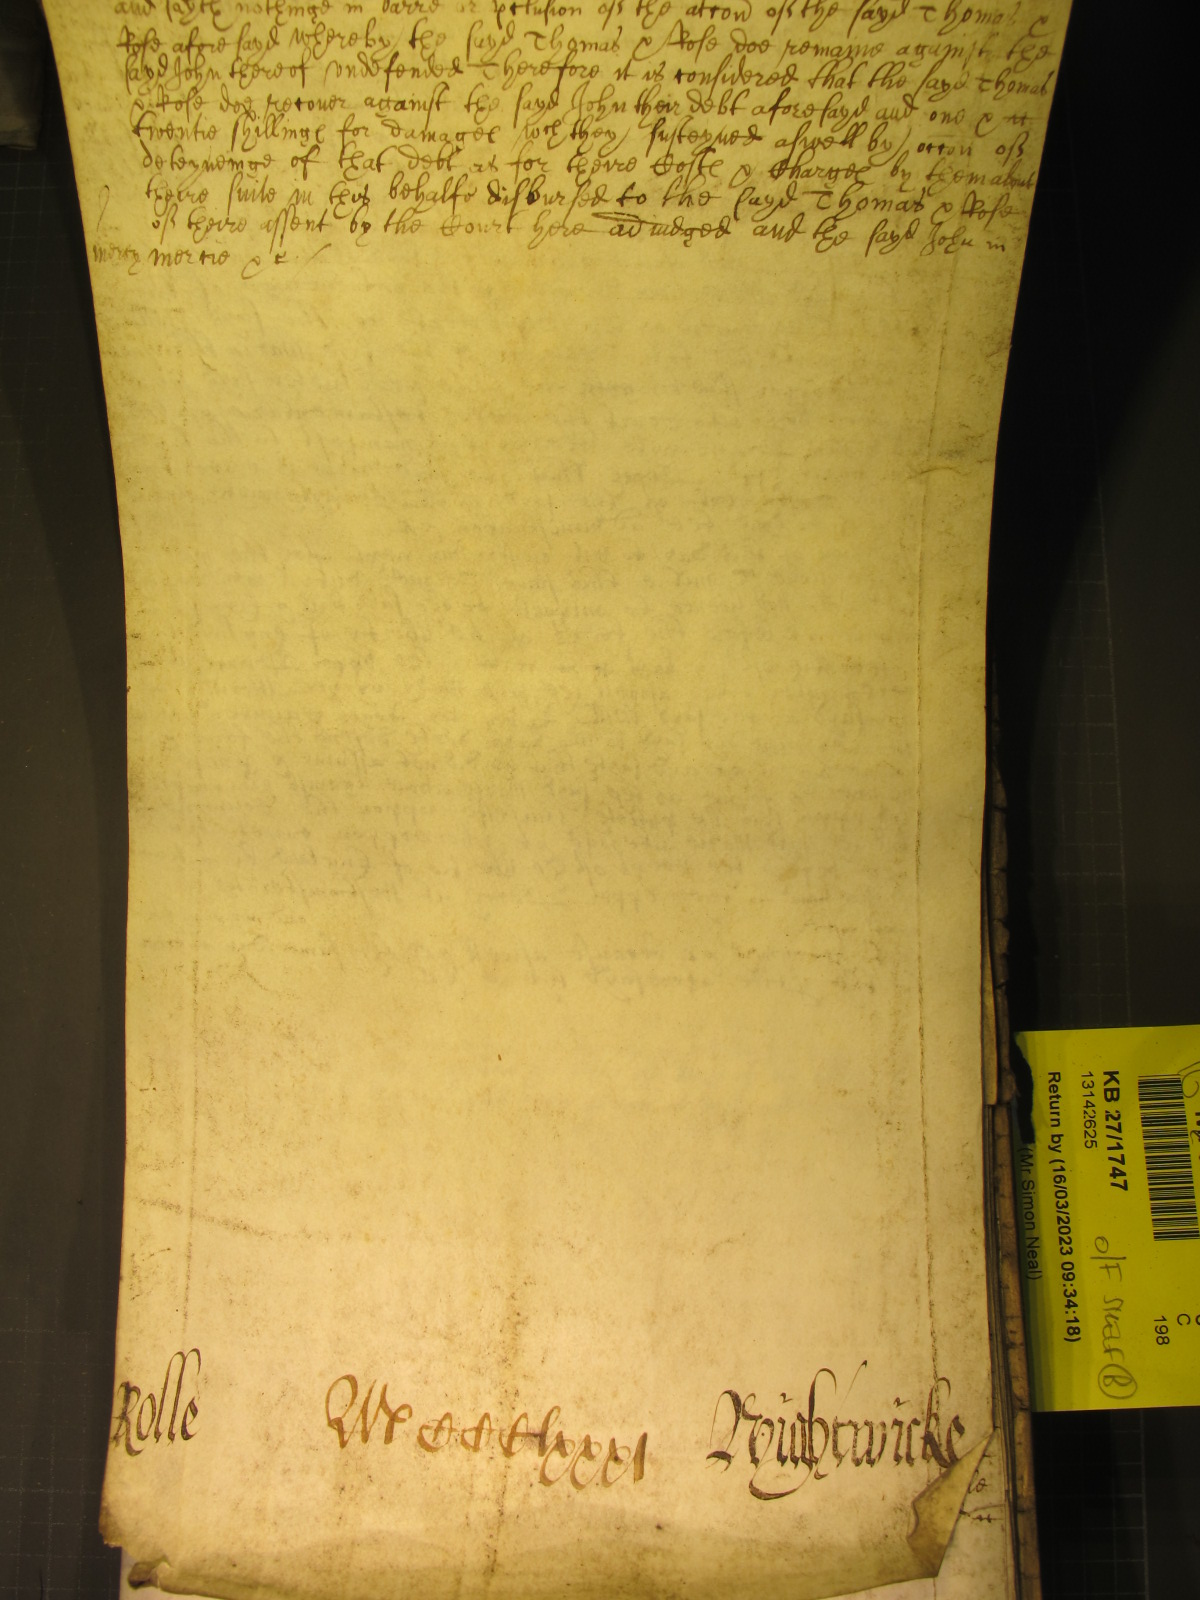 and sayth nothinge in barre or p̄clusion of the accon̄ of the sayd Thomas &
Rose aforesayd whereby the sayd Thomas & Rose doe remaine against the
sayd John thereof undefended Therefore it is considered that the sayd Thomas
& Rose doe recover against the sayd John their debt aforesayd and one &
twentie shillings for damages wch they susteyned aswell by occon̄ of
deteyneinge of that debt as for theire Costs & Charges by them about
theire suite in this behalfe disbursed to the sayd Thomas & Rose
of theire assent by the Court here adiudged and the sayd John in
mercy mercie &c
Rolle Mccclxxxi Nightwicke
KB 27/1747
13142625
Return by (16/03/2023 09:34:18)
(Mr Simon Neal)
O/F
C
198